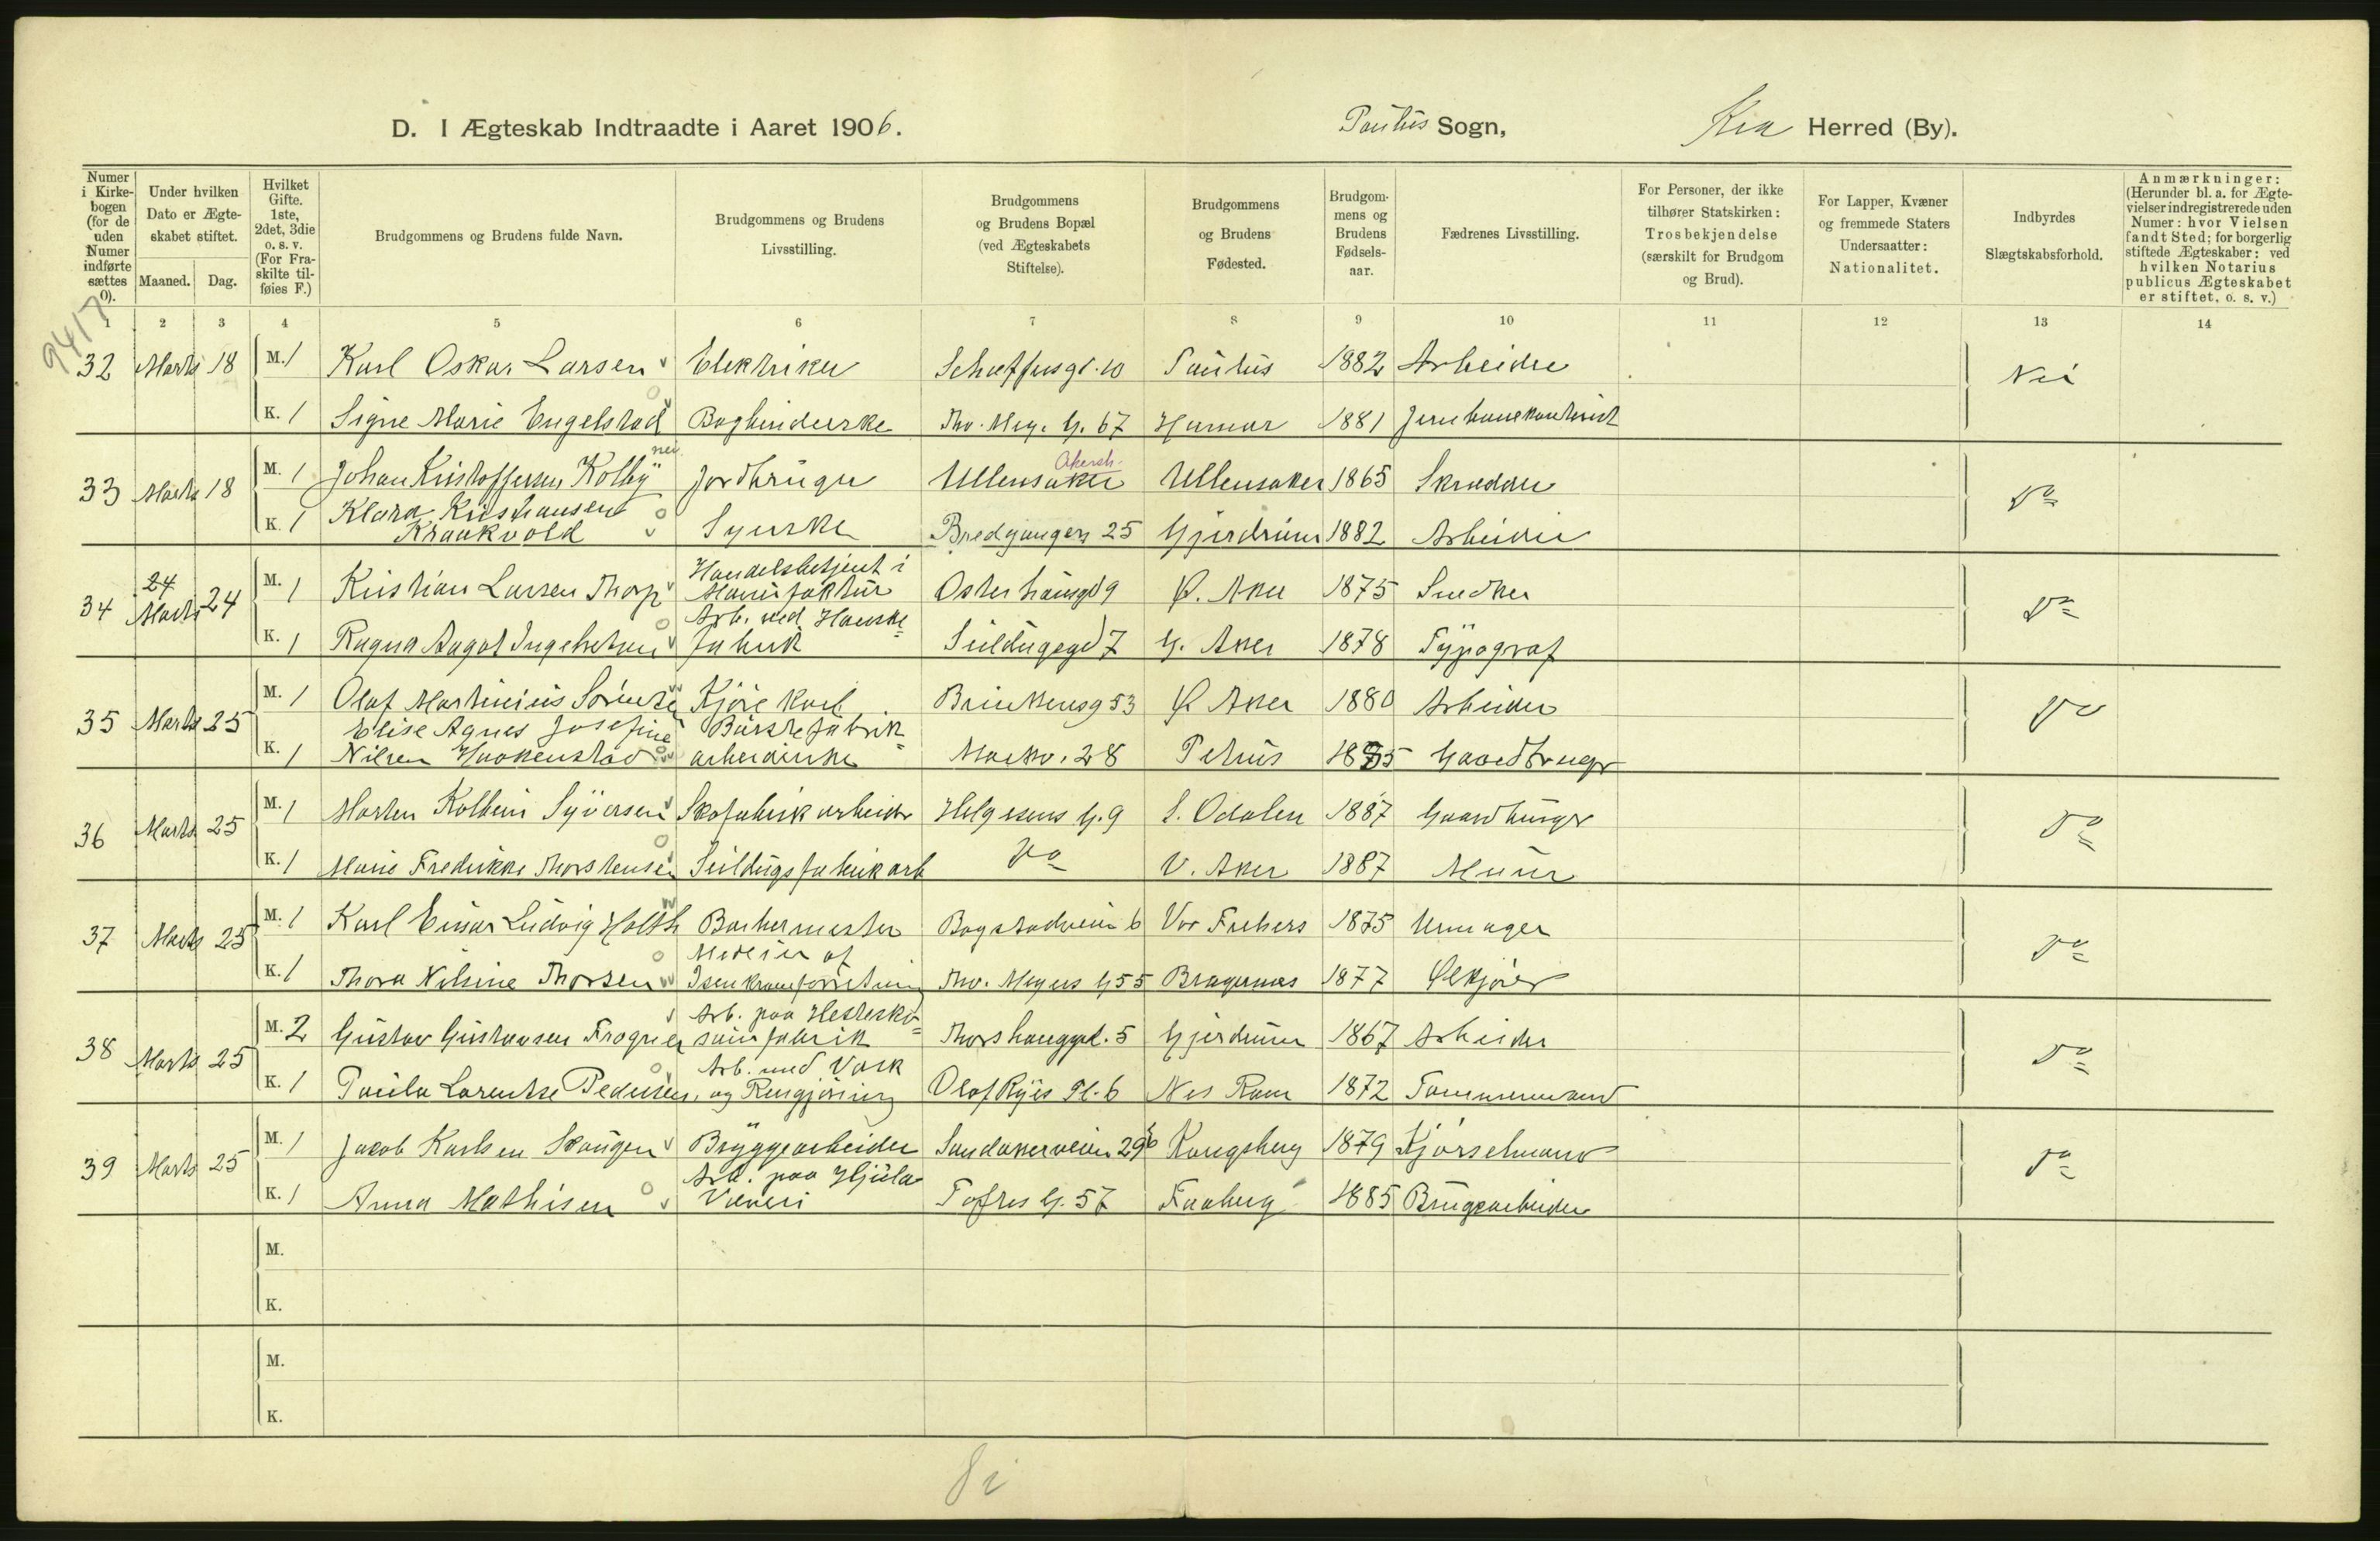 D. I Ægteskab Indtraadte i Aaret 1906.
Paulus Sogn,
Kra Herred (By).
Numer i Kirke-bogen (for de uden Numer indførte sættes 0).
Under hvilken Dato er Ægte-skabet stiftet.
Maaned. Dag.
Hvilket Gifte. 1ste, 2det, 3die o. s. v. (For Fra-skilte til-føies F.)
Brudgommens og Brudens fulde Navn.
Brudgommens og Brudens Livsstilling.
Brudgommens og Brudens Bopæl (ved Ægteskabets Stiftelse).
Brudgommens og Brudens Fødested.
Brudgom-mens og Brudens Fødsels-aar.
Fædrenes Livsstilling.
For Personer, der ikke tilhører Statskirken: Trosbekjendelse (særskilt for Brudgom og Brud).
For Lapper, Kvæner og fremmede Staters Undersaatter: Nationalitet.
Indbyrdes Slægtskabsforhold.
Anmærkninger: (Herunder bl. a. for Ægte-vielser indregistrerede uden Numer: hvor Vielsen fandt Sted; for borgerlig stiftede Ægteskaber: ved hvilken Notarius publicus Ægteskabet er stiftet, o. s. v.)
9417
1 2 3 4 5 6 7 8 9 10 11 12 13 14
32 Marts 18 M. 1 Karl Oskar Larsen Elektriker Schæffersgt. 10 Paulus 1882 Arbeider Nei
K. 1 Signe Marie Engelstad Bogbinderske Thv. Mey. G. 67 Hamar 1881 Jernbanekontorist
nei
Akersh.
33 Marts 18 M. 1 Johan Kristoffersen Kolby Jordbruger Ullensaker Ullensaker 1865 Skrædder Do
K. 1 Klara Kristiansen
Kraakvold Syerske Bredgangen 25 Gjerdrum 1882 Arbeider
24
34 Marts 24 M. 1 Kristian Larsen Thorp Handelsbetjent i
Manufaktur Osterhausgd 9 Ø. Aker 1875 Snedker Do
K. 1 Ragna Aagot Ingebretsen Arb. ved Hanske
fabrik Seildugsgd 7 G. Aker 1878 Typograf
35 Marts 25 M. 1 Olaf Martinius Sørensen Kjørekarl Brinkensg 53 Ø Aker 1880 Arbeider Do
K. 1 Elise Agnes Josefine
Nilsen Haakenstad Børstefabrik
arbeiderske Markv. 28 Petrus 1885 Gaardbruger
36 Marts 25 M. 1 Morten Kolbein Syversen Skofabrikarbeider Helgesens G. 9 S. Odalen 1887 Gaardbruger Do
K. 1 Marie Fredrikke Thorstensen Seildugsfabrikarb Do V. Aker 1887 Murer
37 Marts 25 M. 1 Karl Einar Ludvig Holth Barbermester Bogstadveien 6 Vor Frelsers 1875 Urmager Do
K. 1 Thora Nilsine Thorsen Medeier af
Isenkramforretning Thv. Meyers G 55 Bragernes 1877 Ølkjører
38 Marts 25 M. 2 Gustav Gustavsen Frogner Arb. paa Hestesko-
sømfabrik Thorshauggd. 5 Gjerdrum 1867 Arbeider Do
K. 1 Paula Lorentse Pedersen Arb. med Vask
og Rengjøring Olaf Ryes Pl. 6 Nes Rom 1872 Tømmermand
39 Marts 25 M. 1 Jakob Karlsen Skaugen Bryggearbeider Sandakerveien 29b Kongsberg 1879 Kjørselmand Do
K. 1 Anna Mathisen Arb. paa Hjula
Væveri Toftes G. 57 Faaberg 1885 Brugsarbeider
M.
K.
M.
K.